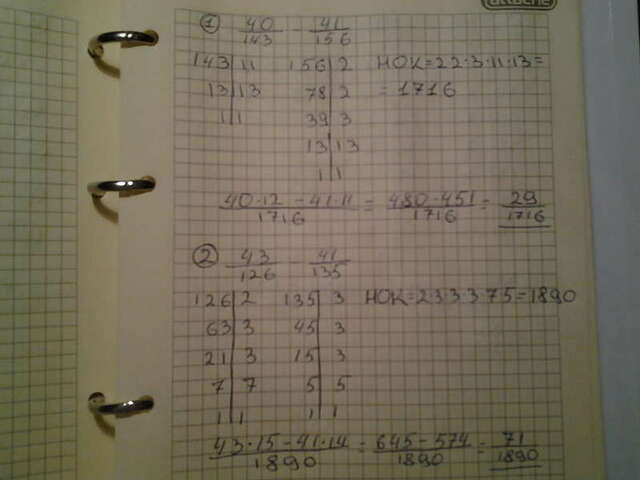 attache
① 40/143 - 41/156
143|11 156|2 НОК=2·2·3·11·13=
13|13 78|2 =1716
1|1 39|3
13|13
1|1
40·12-41·11/1716 = 480-451/1716 = 29/1716
② 43/126 - 41/135
126|2 135|3 НОК=2·3·3·3·7·5=1890
63|3 45|3
21|3 15|3
7|7 5|5
1|1 1|1
43·15-41·14/1890 = 645-574/1890 = 71/1890